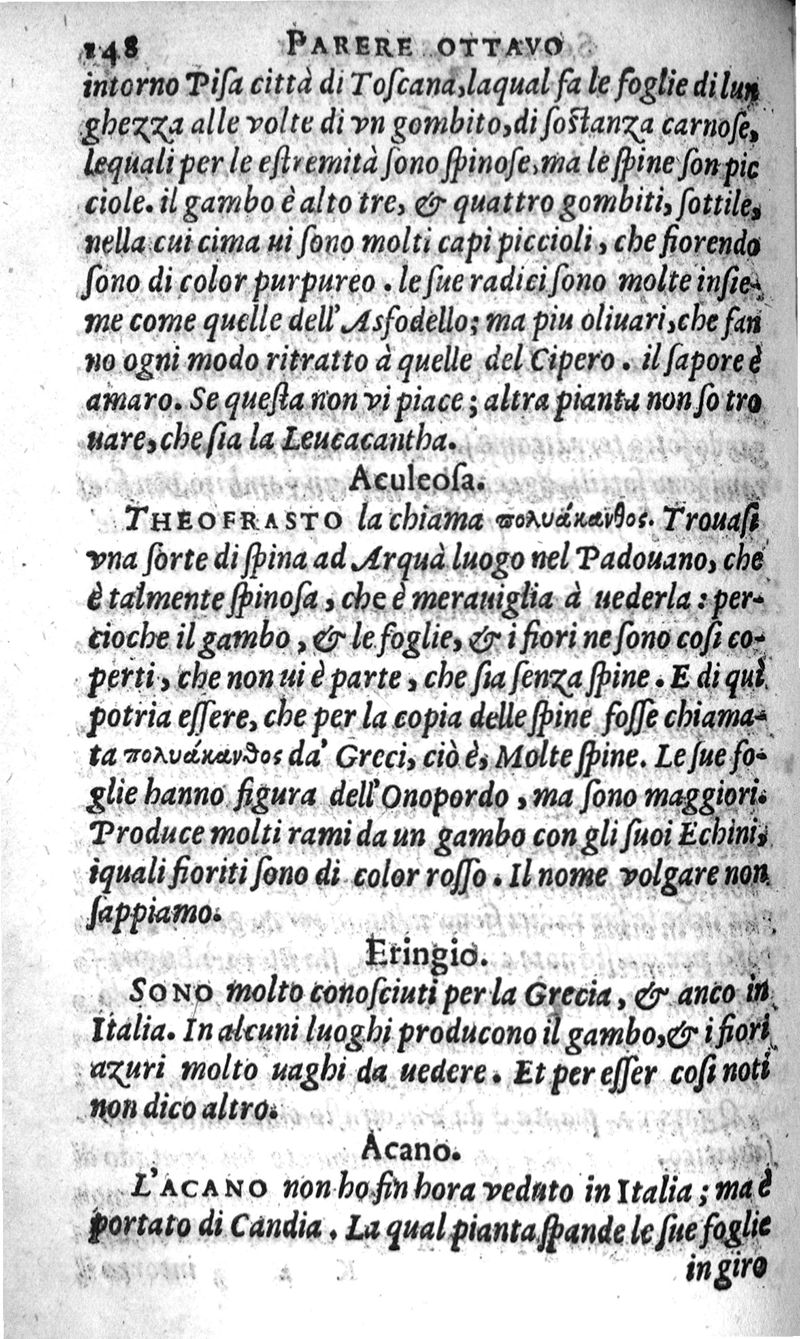 148 PARERE OTTAVO
intorno Piſa città di Toſcana, laqual fa le foglie di lun
ghezza alle volte di vn gombito, di ſoſtanza carnoſe,
lequali per le eſtremità ſono ſpinoſe, ma le ſpine ſon pic
ciole. il gambo è alto tre, & quattro gombiti, ſottile,
nella cui cima ui ſono molti capi piccioli, che fiorendo
ſono di color purpureo. le ſue radici ſono molte inſie-
me come quelle dell' Asfodello; ma piu oliuari, che fan
no ogni modo ritratto à quelle del Cipero. il ſapore è
amaro. Se queſta non vi piace; altra pianta non ſo tro
uare, che ſia la Leucacantha.
Aculeoſa.
THEOFRASTO la chiama πολυάκανθος. Trouaſi
vna ſorte di ſpina ad Arquà luogo nel Padouano, che
è talmente ſpinoſa, che è merauiglia à uederla: per-
cioche il gambo, & le foglie, & i fiori ne ſono coſi co-
perti, che non ui è parte, che ſia ſenza ſpine. E di quì
potria eſſere, che per la copia delle ſpine foſſe chiama-
ta πολυάκανθος da' Greci, ciò è, Molte ſpine. Le ſue fo-
glie hanno figura dell' Onopordo, ma ſono maggiori.
Produce molti rami da un gambo con gli ſuoi Echini,
iquali fioriti ſono di color roſſo. Il nome volgare non
ſappiamo.
Eringio.
SONO molto conoſciuti per la Grecia, & anco in
Italia. In alcuni luoghi producono il gambo, & i fiori
azuri molto uaghi da uedere. Et per eſſer coſi noti
non dico altro.
Acano.
L'ACANO non ho fin hora veduto in Italia; ma è
portato di Candia. La qual pianta ſpande le ſue foglie
in giro